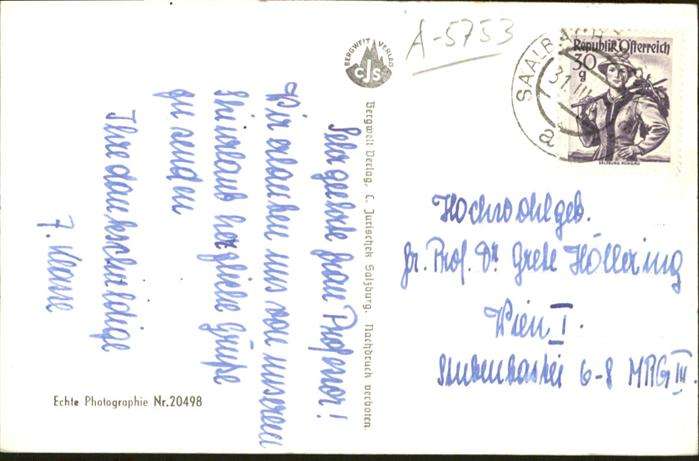 Sehr geehrte Frau Professor!
Wir erlauben uns von unserem
Skiurlaub herzliche Grüße
zu senden
Ihre dankschuldige
7. Klasse
A-5753
BERGWELT VERLAG
CJS
Bergwelt Verlag, C. Jurischek Salzburg. Nachdruck verboten.
SAALBACH
31. III
a
Republik Österreich
30
g
SALZBURG PONGAU
Hochwohlgeb.
Fr. Prof. Dr Grete Höllering
Wien I.
Stubenbastei 6-8 MRG III.
Echte Photographie Nr.20498